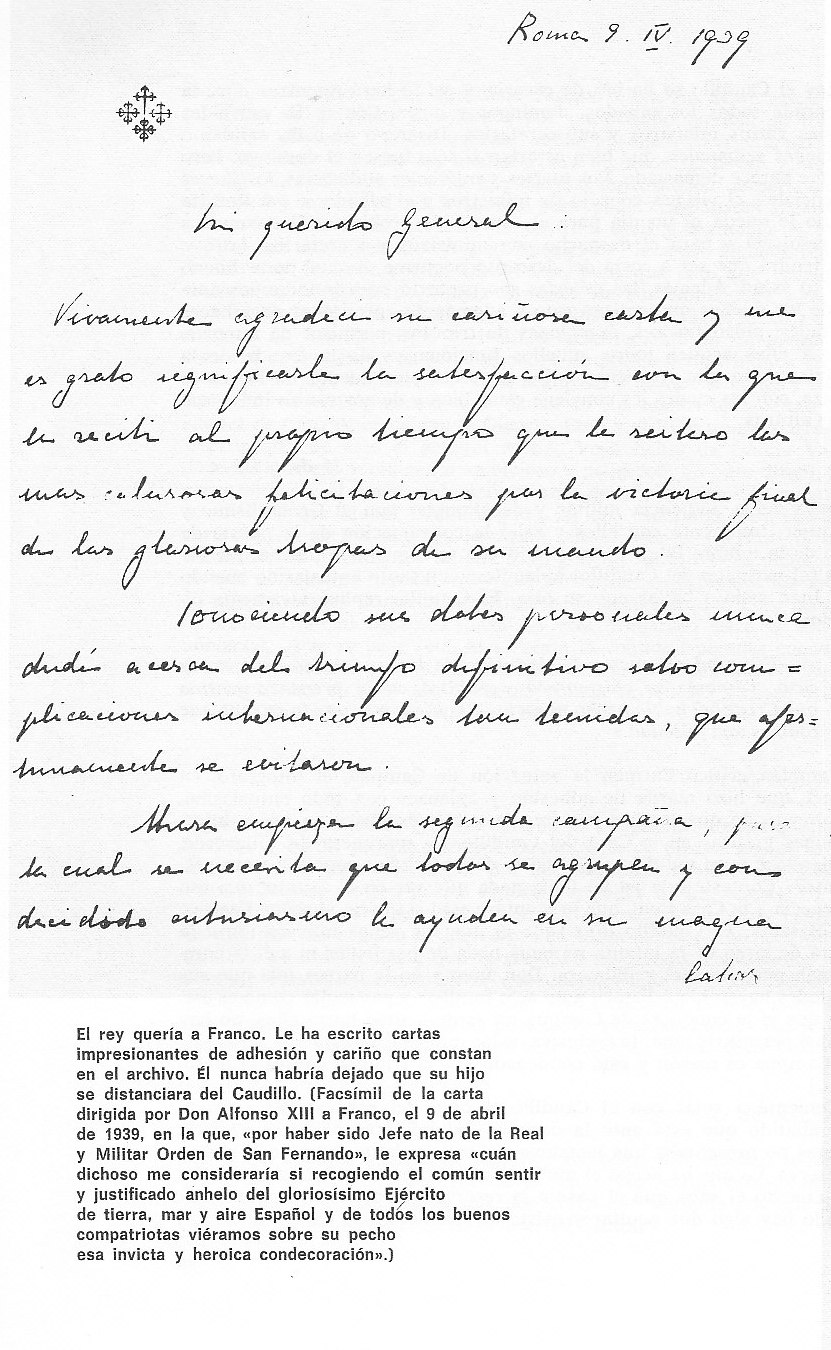 Roma 9. IV. 1939
Mi querido General :
Vivamente agradecí su cariñosa carta y me
es grato significarle la satisfacción con la que
la recibí al propio tiempo que le reitero las
mas calurosas felicitaciones por la victoria final
de las gloriosas tropas de su mando.
Conociendo sus dotes personales nunca
dudé acerca del triunfo definitivo salvo com=
plicaciones internacionales tan temidas, que afor=
tunamente se evitaron.
Ahora empieza la segunda campaña, para
la cual se necesita que todos se agrupen y con
decidido entusiasmo le ayuden en su magna
labor
El rey quería a Franco. Le ha escrito cartas
impresionantes de adhesión y cariño que constan
en el archivo. Él nunca habría dejado que su hijo
se distanciara del Caudillo. (Facsímil de la carta
dirigida por Don Alfonso XIII a Franco, el 9 de abril
de 1939, en la que, «por haber sido Jefe nato de la Real
y Militar Orden de San Fernando», le expresa «cuán
dichoso me consideraría si recogiendo el común sentir
y justificado anhelo del gloriosísimo Ejército
de tierra, mar y aire Español y de todos los buenos
compatriotas viéramos sobre su pecho
esa invicta y heroica condecoración».)